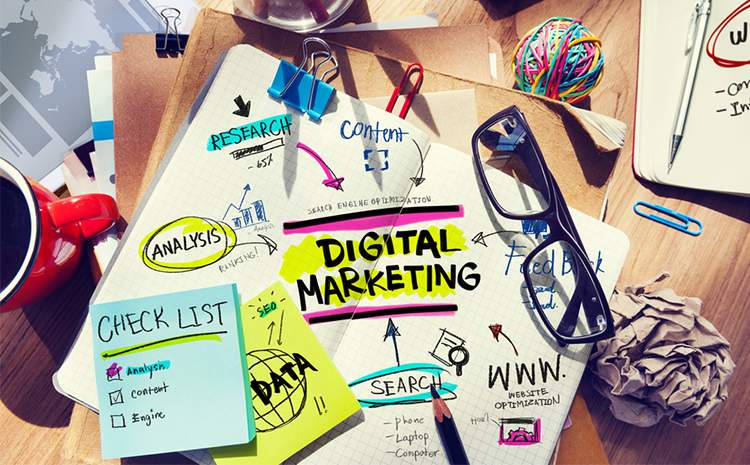 RESEARCH
65%
Content
SEARCH ENGINE OPTIMIZATION
ANALYSIS
Analysis
RANKING!
DIGITAL
MARKETING
Feed Back
CHECK LIST
Analysis
Content
Engine
SEO
DATA
!!
SEARCH
- phone
- Laptop
- Computer
WWW.
WEBSITE
OPTIMIZATION